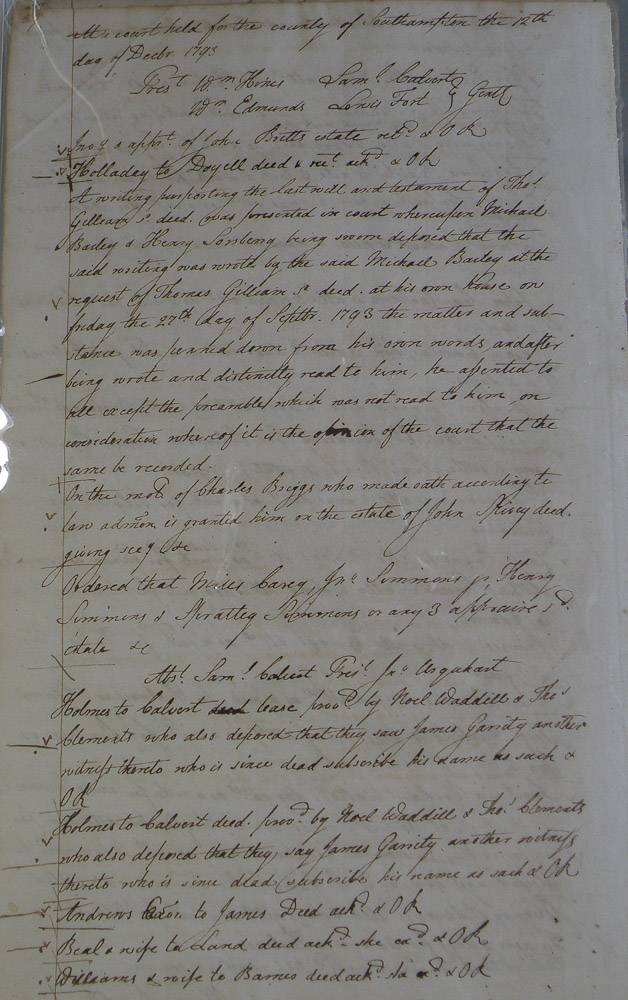 At a court held for the county of Southampton the 12th
day of Decbr 1793
Prest. Wm. Hines Saml. Calvert
Wm. Edmunds Lewis Fort } Gent
Invy & apprt. of John Britts estate retd. & OR
Holladay to Doyell deed & rect. ackd. & OR
A writing purporting the last will and testament of Thos.
Gilleam sr. deed. was presented in court whereupon Michael
Bailey & Henry being sworn deposed that the
said writing was wrote by the said Michael Bailey at the
request of Thomas Gilliam sr deed. at his own house on
friday the 27th day of Septbr. 1793 the matter and sub-
stance was penned down from his own words, and after
being wrote and distinctly read to him, he assented to
all except the preamble which was not read to him, on
consideration whereof it is the opinion of the court that the
same be recorded.
On the mot. of Charles Briggs who made oath according to
law admon. is granted him on the estate of John Spivey deed.
giving secy &c
Ordered that Miles Carey, Jno. Simmons jr, Henry
Simmons & Spratley Simmons or any 3 appraise sd.
estate &c
Abst. Saml. Calvert Prest. Jno Urquhart
Holmes to Calvert lease provd. by Noel Waddill & Thos
Clements who also deposed that they saw James Garrity another
witness thereto who is since dead subscribe his name as such &
OR
Holmes to Calvert deed. provd. by Noel Waddill & Thos. Clements
who also deposed that they say James Garrity another witness
thereto who is since dead subscribe his name as such & OR
Andrews Exor. to James Deed ackd. & OR
Beal & wife to Land deed ackd. she exd. & OR
Williams & wife to Barnes deed ackd. she exd. & OR